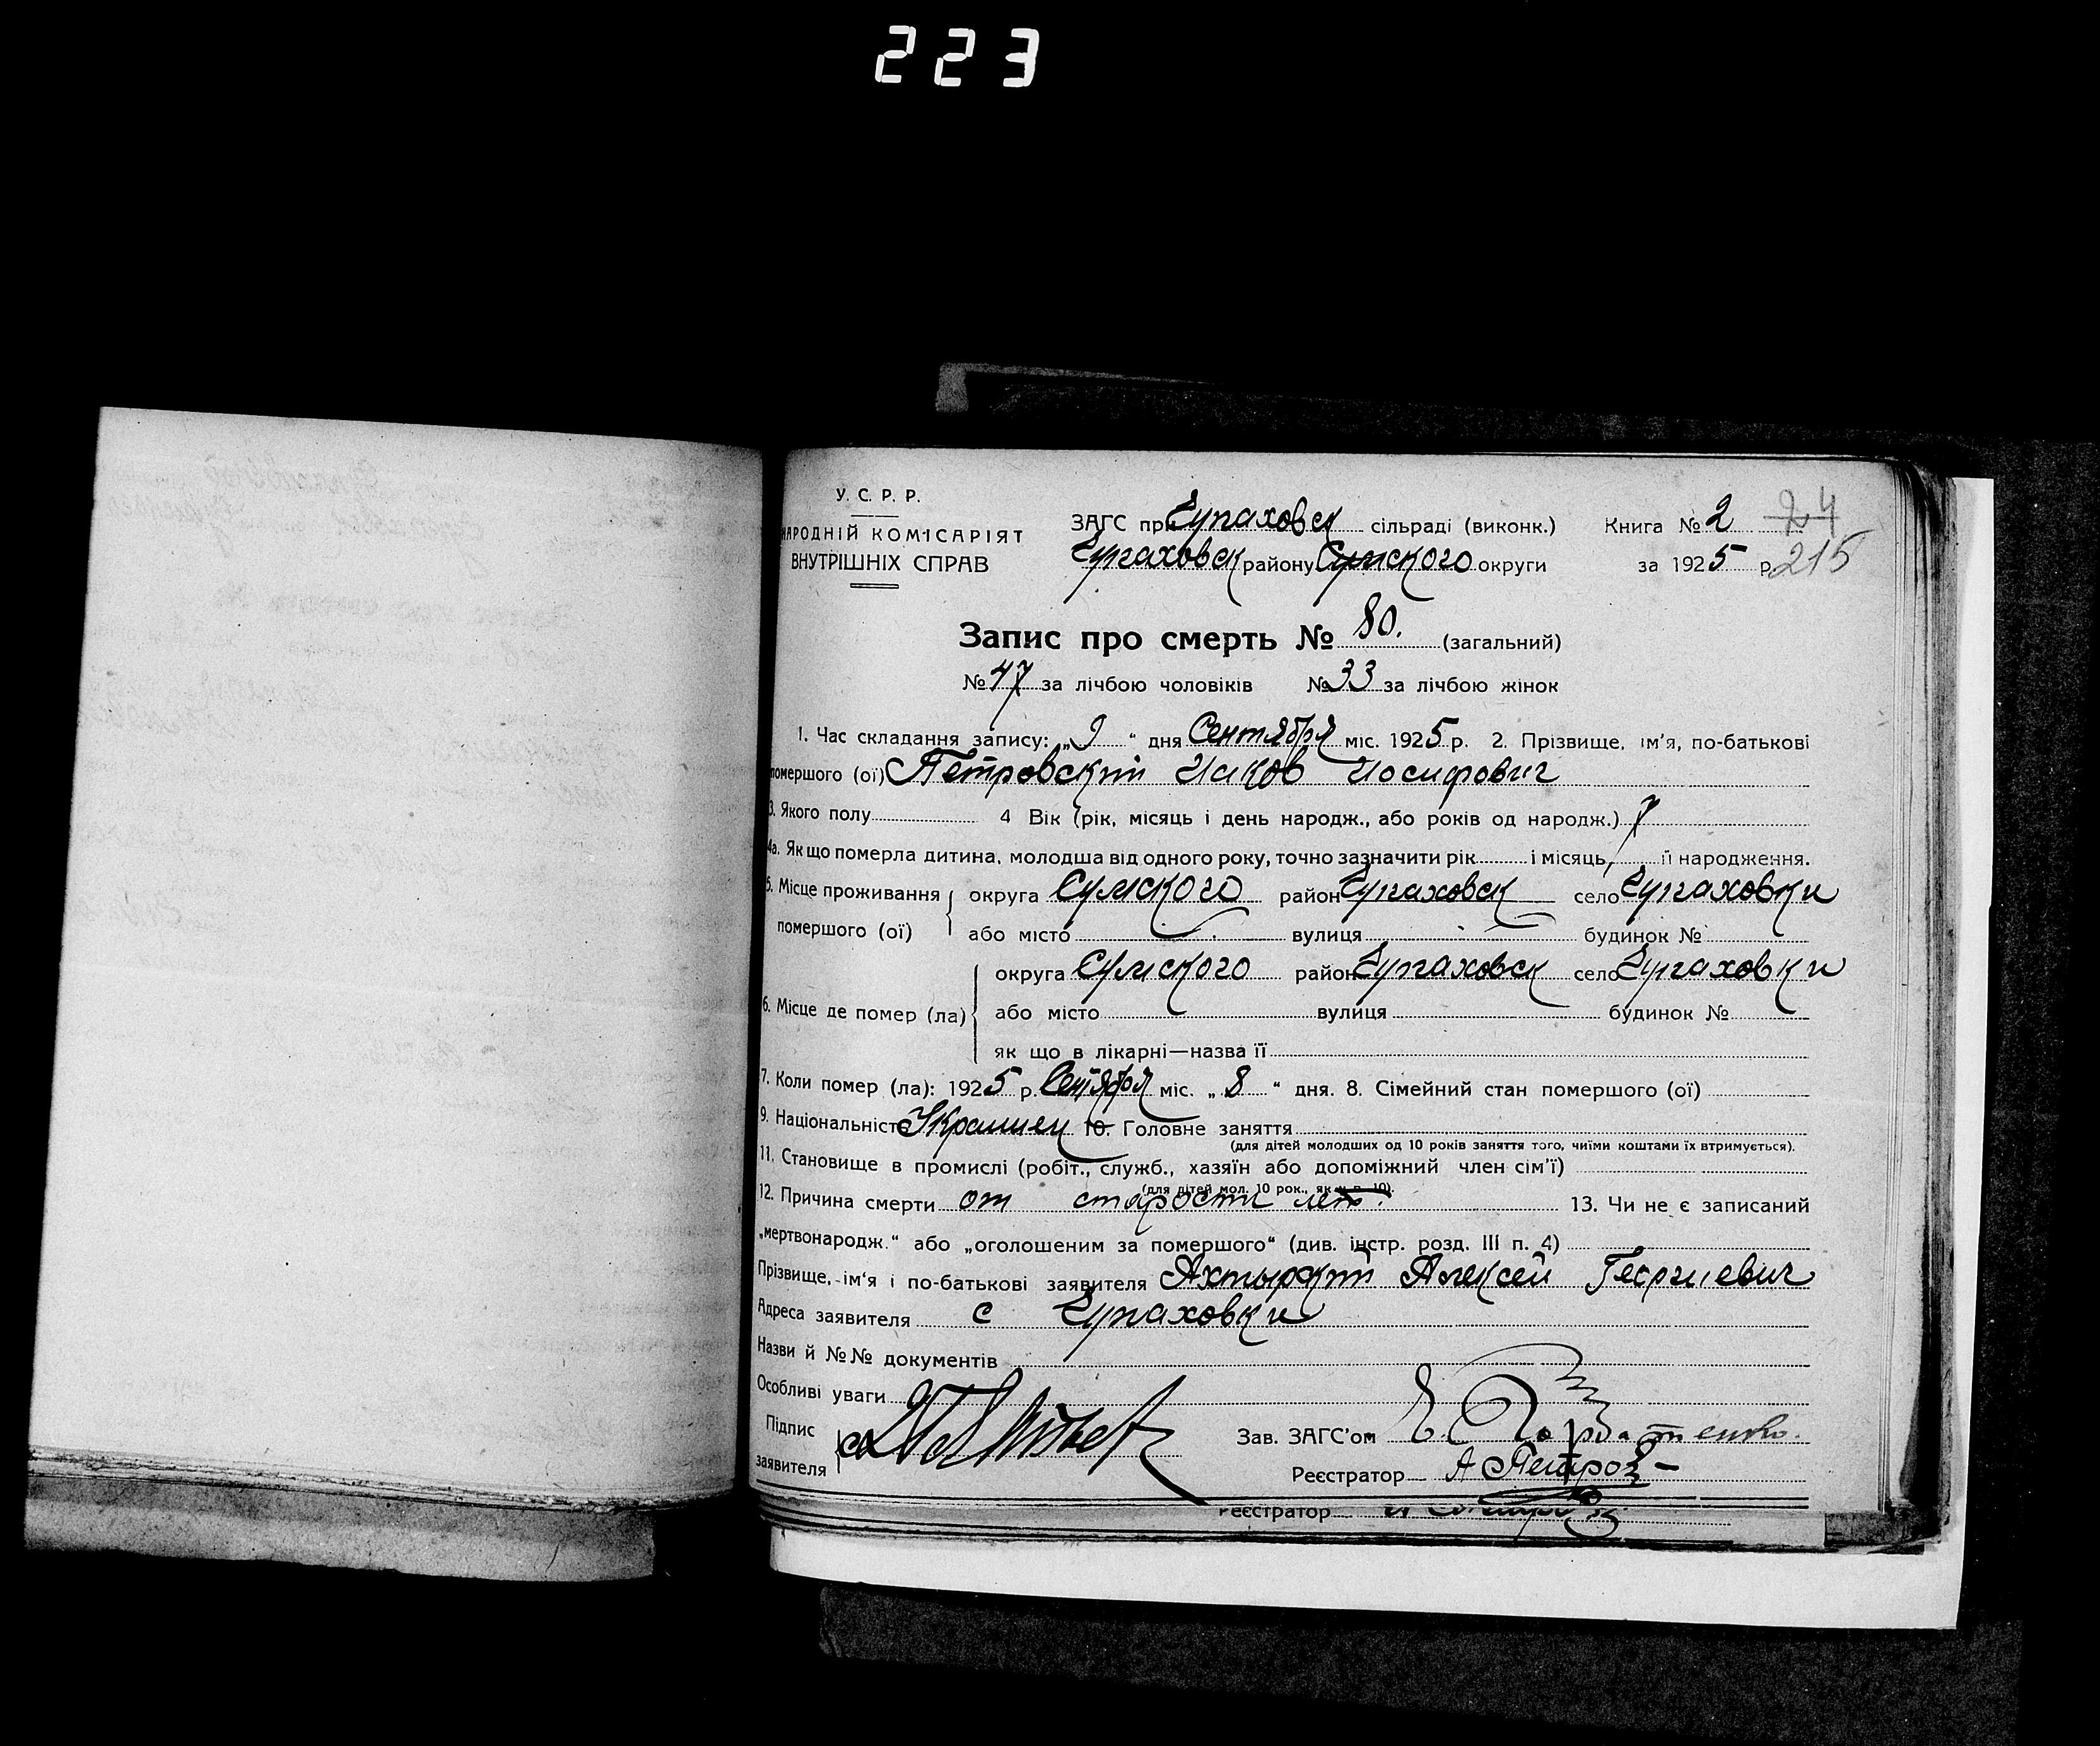 223
У. С. Р. Р.
НАРОДНІЙ КОМІСАРІЯТ
ВНУТРІШНІХ СПРАВ
ЗАГС при Чупаховск сільраді (виконк.)
Чупаховск району Сумского округи
Книга № 2 24
за 1925 р. 215
Запис про смерть № 80. (загальний)
№ 47 за лічбою чоловіків № 33 за лічбою жінок
1. Час складання запису: „9“ дня Сентября міс. 1925 р. 2. Прізвище, ім'я, по-батькові
помершого (ої) Петровский Иаков Иосифович
3. Якого полу 4 Вік (рік, місяць і день народж., або років од народж.)
4а. Як що померла дитина, молодша від одного року, точно зазначити рік і місяць, її народження.
5. Місце проживання округа Сумского район Чупаховск село Чупаховки
помершого (ої) або місто вулиця будинок №
округа Сумского район Чупаховск село Чупаховки
6. Місце де помер (ла) або місто вулиця будинок №
як що в лікарні—назва її
7. Коли помер (ла): 1925 р. Сентября міс. „8“ дня. 8. Сімейний стан помершого (ої)
9. Національність Украинец 10. Головне заняття
(для дітей молодших од 10 років заняття того, чиїми коштами їх втримується).
11. Становище в промислі (робіт., служб., хазяїн або допоміжний член сім'ї)
(для дітей мол. 10 рок., як у п. 10).
12. Причина смерти от старости лет. 13. Чи не є записаний
„мертвонародж.“ або „оголошеним за помершого“ (див. інстр. розд. III п. 4)
Прізвище, ім'я і по-батькові заявителя Ахтырский Алексей Георгиевич
Адреса заявителя с Чупаховки
Назви й №№ документів
Особливі уваги
Підпис
заявителя
Зав. ЗАГС'ом
Реєстратор А Петров
Реєстратор